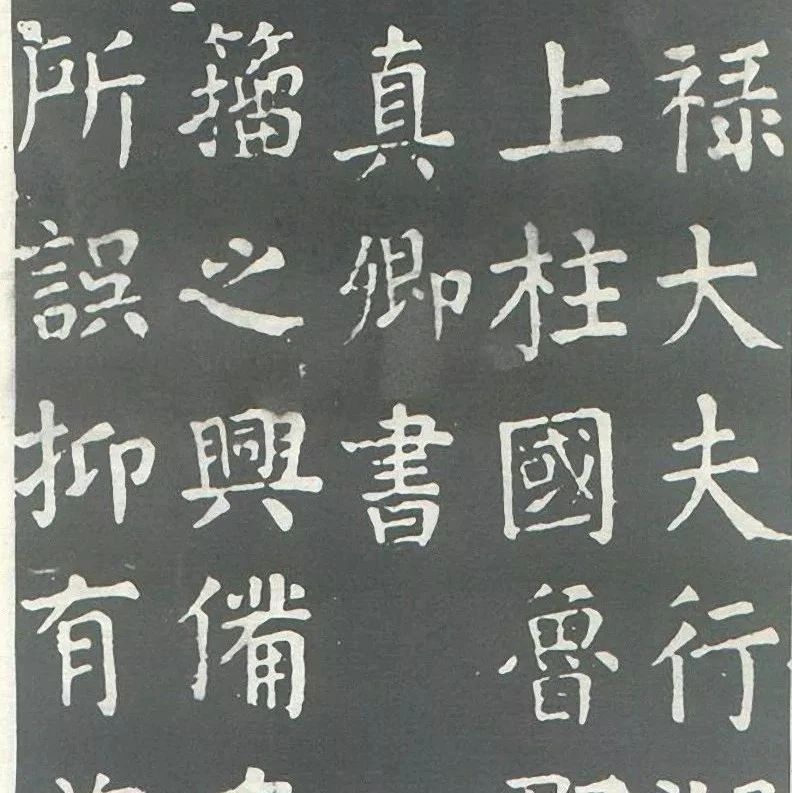 禄大夫行
上柱國魯
真卿書
籀之興備
所誤抑有